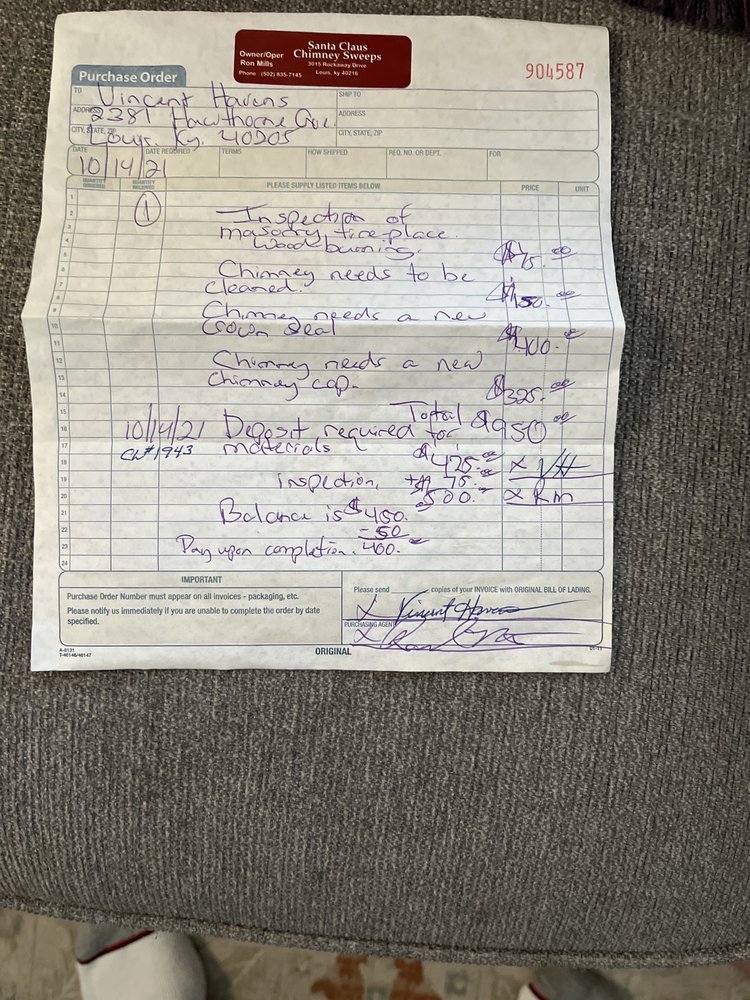 Santa Claus
Chimney Sweeps
Owner/Oper
Ron Mills
3015 Rockaway Drive
Phone (502) 835-7145
Louis, ky 40216
904587
Purchase Order
TO Vincent Havens
SHIP TO
ADDRESS 2381 Hawthorne Ave.
ADDRESS
CITY, STATE, ZIP Lou, Ky. 40205
CITY, STATE, ZIP
DATE
DATE REQUIRED
TERMS
HOW SHIPPED
REQ. NO. OR DEPT.
FOR
10/14/21
QUANTITY ORDERED
QUANTITY RECEIVED
PLEASE SUPPLY LISTED ITEMS BELOW
PRICE
UNIT
1
2
3
4
5
6
7
8
9
10
11
12
13
14
15
16
17
18
19
20
21
22
23
24
1 Inspection of
masonry fire place.
Wood burning. $75.00
Chimney needs to be
cleaned. $150.00
Chimney needs a new
Crown Seal $400.00
Chimney needs a new
Chimney cap. $325.00
Total $950.00
10/14/21 Deposit required for
Ck#1943 materials $425.00 X VH
inspection, +$75.00
500.00 X RM
Balance is $450.
-50
Pay upon completion. 400.
IMPORTANT
Purchase Order Number must appear on all invoices - packaging, etc.
Please notify us immediately if you are unable to complete the order by date
specified.
Please send copies of your INVOICE with ORIGINAL BILL OF LADING.
X Vincent Havens
PURCHASING AGENT
X
A-8131
T-46146/46147
ORIGINAL